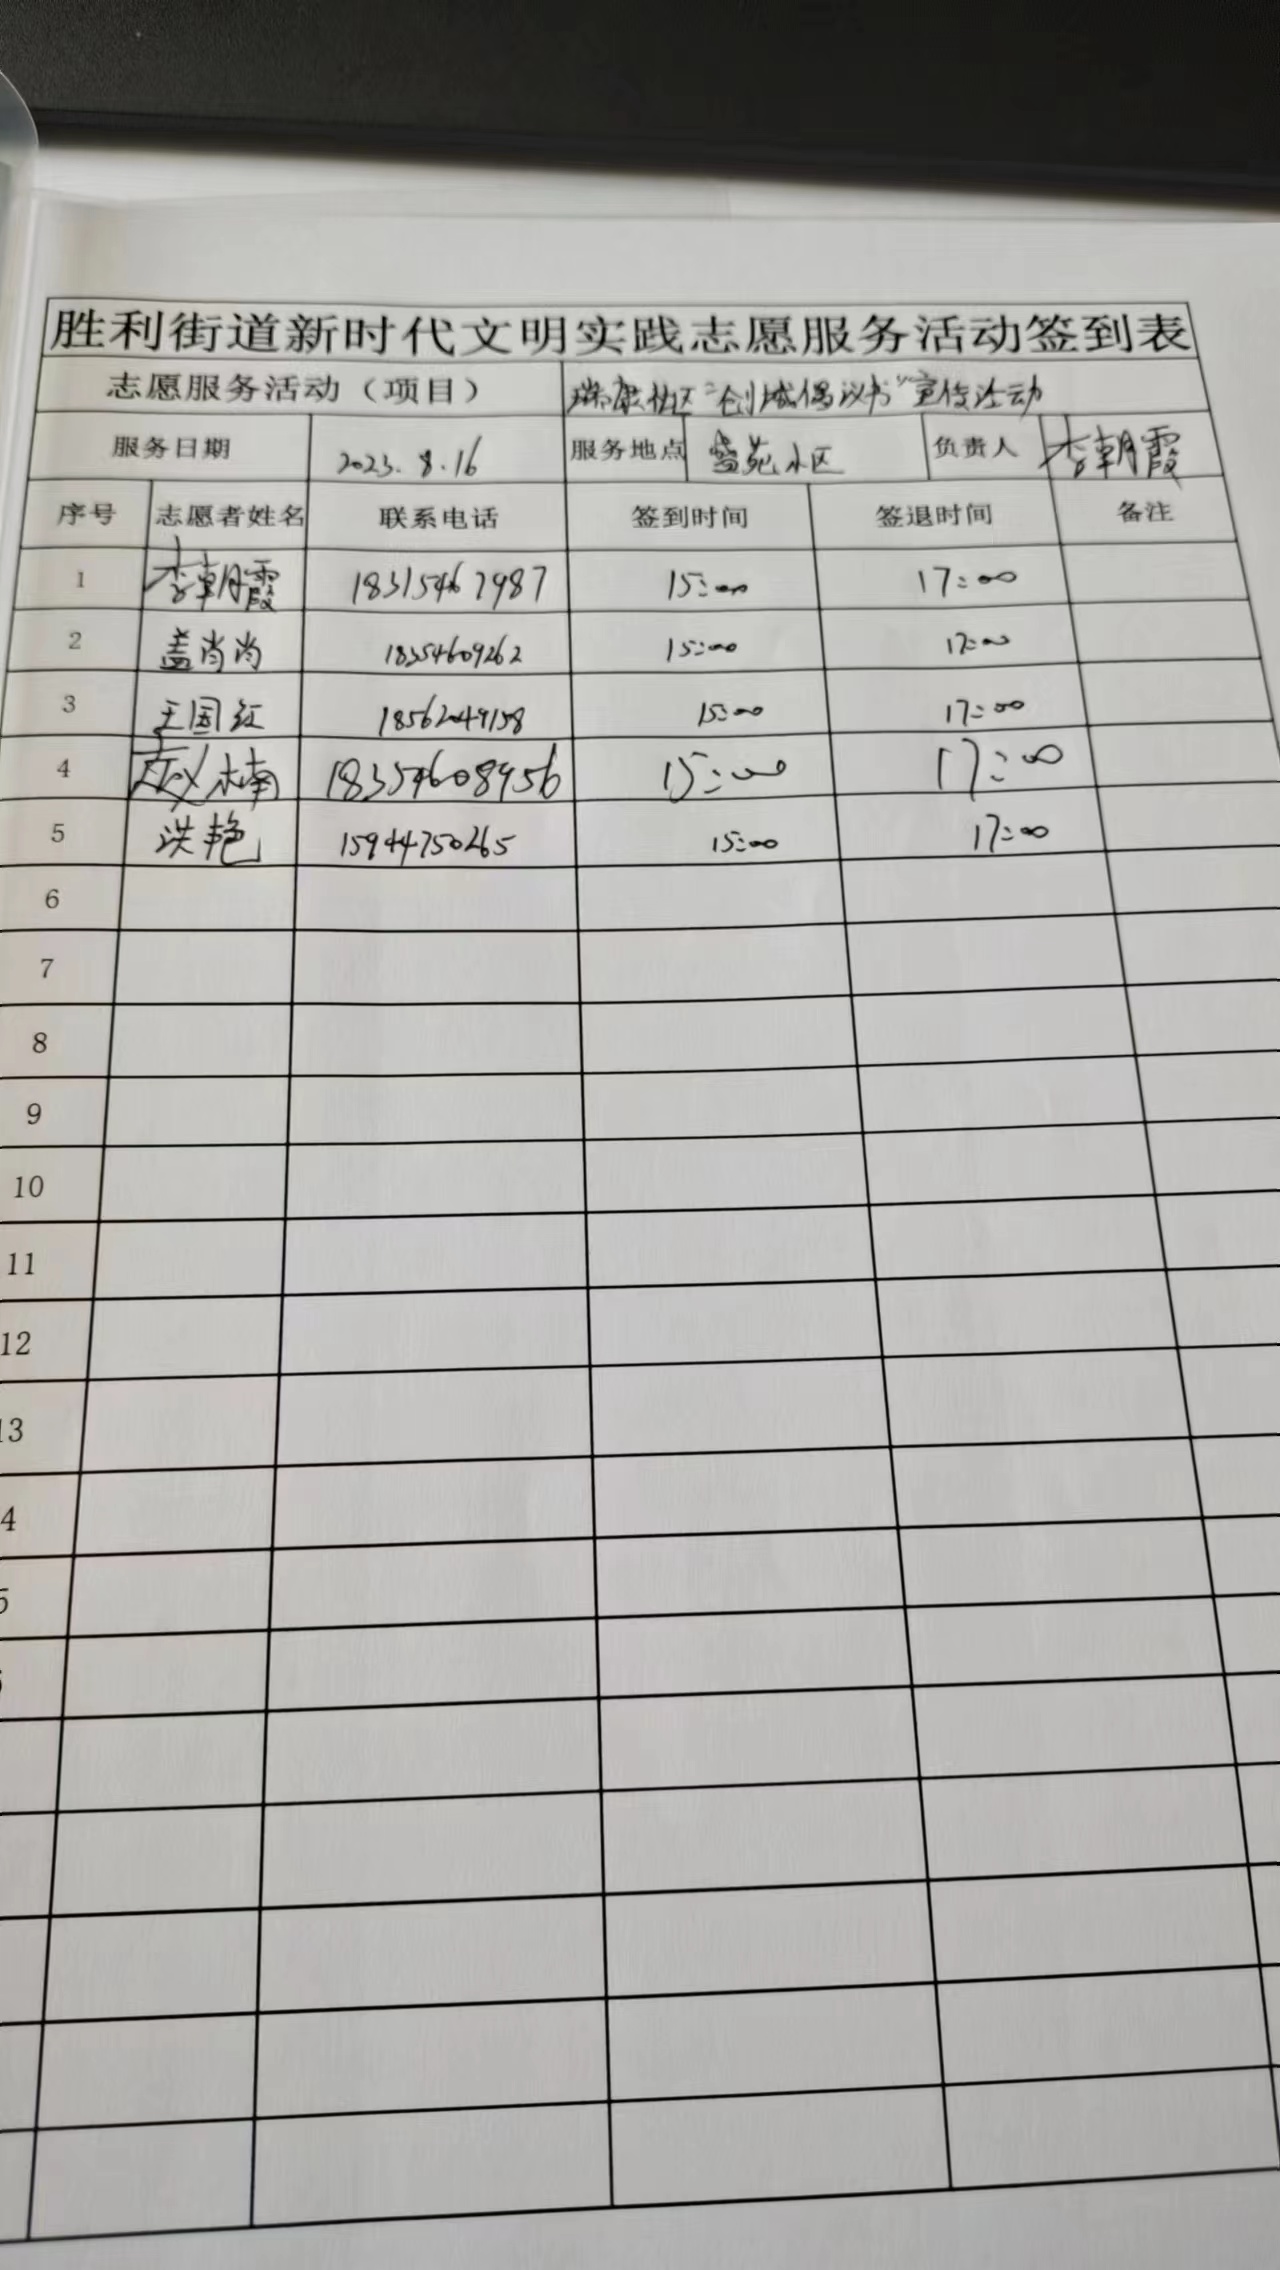 胜利街道新时代文明实践志愿服务活动签到表
志愿服务活动（项目） 瑞康社区“创城倡议书”宣传活动
服务日期 2023.8.16 服务地点 盛苑小区 负责人 李朝霞
序号 志愿者姓名 联系电话 签到时间 签退时间 备注
1 李朝霞 18315467987 15:00 17:00
2 盖尚尚 18354609262 15:00 17:00
3 王国红 18562049158 15:00 17:00
4 赵木楠 18354608956 15:00 17:00
5 洪艳 15944750265 15:00 17:00
6
7
8
9
10
11
12
13
4
5